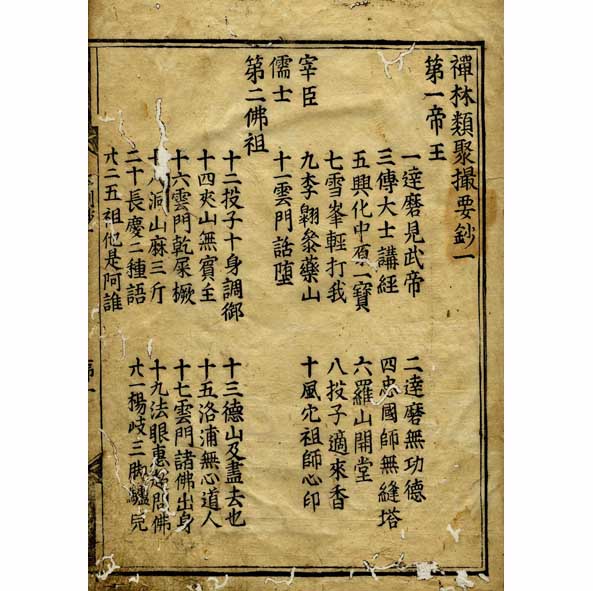 禪林類聚撮要鈔一
第一帝王
一達磨見武帝 二達磨無功德
三傳大士講經 四忠國師無縫塔
五興化中原一寶 六羅山開堂
七雪峯輕打我 八投子適來香
宰臣 九李翺叅藥山 十風穴祖師心印
儒士 十一雲門話墮
第二佛祖
十二投子十身調御 十三德山及盡去也
十四夾山無賓主 十五洛浦無心道人
十六雲門乾屎橛 十七雲門諸佛出身
十八洞山麻三斤 十九法眼惠超問佛
二十長慶二種語 廿一楊岐三脚驢
廿二五祖他是阿誰